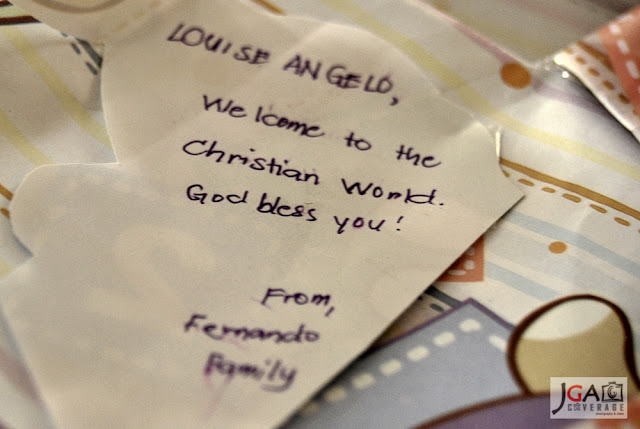 LOUISE ANGELO,
Welcome to the
Christian World.
God bless you!
From,
Fernando
Family
JGA
COVERAGE